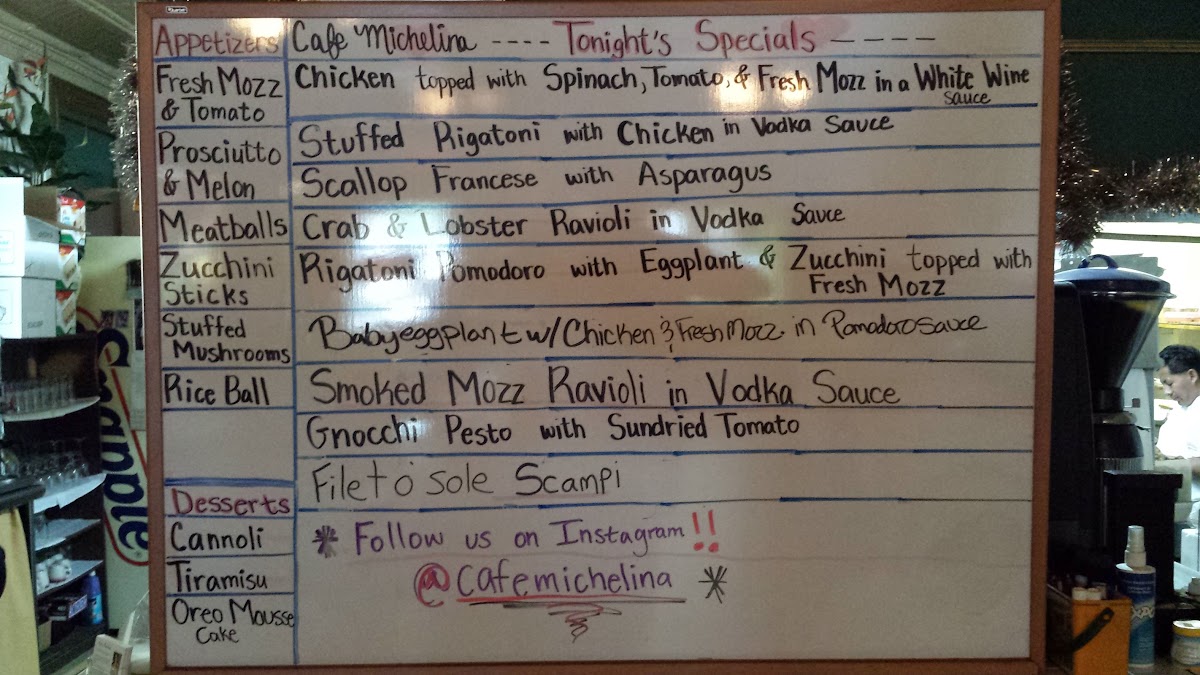 Appetizers
Fresh Mozz
& Tomato
Prosciutto
& Melon
Meatballs
Zucchini
Sticks
Stuffed
Mushrooms
Rice Ball
Desserts
Cannoli
Tiramisu
Oreo Mousse
Cake
Cafe Michelina ---- Tonight's Specials ----
Chicken topped with Spinach, Tomato, & Fresh Mozz in a White Wine
Sauce
Stuffed Rigatoni with Chicken in Vodka Sauce
Scallop Francese with Asparagus
Crab & Lobster Ravioli in Vodka Sauce
Rigatoni Pomodoro with Eggplant & Zucchini topped with
Fresh Mozz
Baby eggplant w/ Chicken & Fresh Mozz. in Pomodoro sauce
Smoked Mozz Ravioli in Vodka Sauce
Gnocchi Pesto with Sundried Tomato
Filet o' sole Scampi
* Follow us on Instagram!!
@cafemichelina *